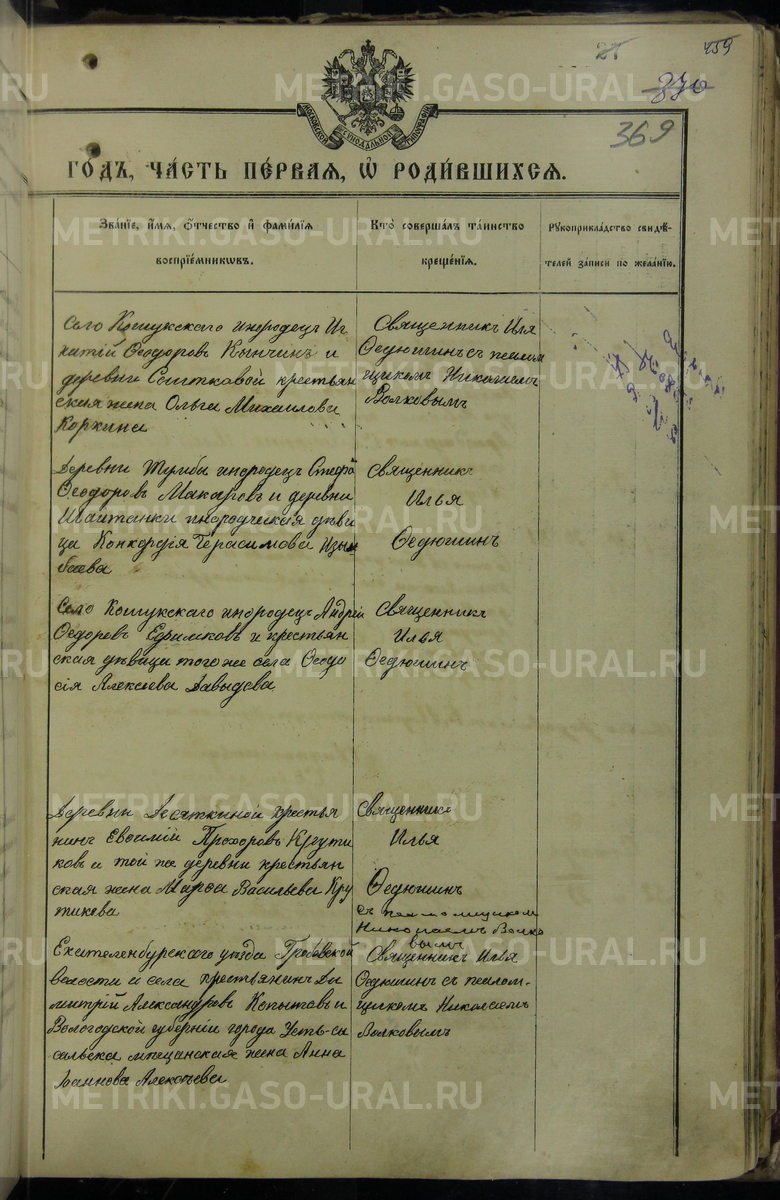 25
459
370
369
МОСКОВСКОЙ СѴНОДАЛЬНОЙ ТИПОГРАФІИ
ГОДЪ, ЧАСТЬ ПЕРВАЯ, Ѡ РОДИВШИХСЯ.
Званіе, имя, отчество и фамилія
воспріемниковъ.
Кто совершалъ таинство
крещенія.
Рукоприкладство свидѣ-
телей записи по желанію.
Село Кошукскаго инородецъ Иг
натій Ѳеодоровъ Кынчинъ и
деревни Саитковой крестьян
ская жена Ольга Михаилова
Коркина
Священникъ Илія
Ѳедюшинъ с псалом
щикомъ Николаемъ
Волковымъ
Деревни Тумба инородецъ Стефа
Ѳеодоровъ Макаровъ и деревни
Шаитанки инородческая дѣви
ца Конкордія Герасимова Изым
баева
Священникъ
Илья
Ѳедюшинъ
Село Кошукскаго инородецъ Андрій
Ѳедоровъ Ефимковъ и крестьян
ская дѣвица того же села Ѳеодо
сія Алексіева Давыдова
Священникъ
Илья
Ѳедюшинъ
Деревни Десяткиной крестья
нинъ Евѳимій Прохоровъ Крути
ковъ и той же деревни крестьян
ская жена Марѳа Васильева Кру
тикова
Священникъ
Илья
Ѳедюшинъ
съ псаломщикомъ
Николаемъ Волко
вымъ
Екателенбурскаго уѣзда Гробовской
волости и села крестьянинъ Ди
митрій Александровъ Копытовъ и
Вологодской губерніи города Усть-сы
сольска мѣщанская жена Анна
Іоаннова Алексѣева
Священникъ Илья
Ѳедюшинъ съ псалом-
щикомъ Николаемъ
Волковымъ
METRIKI.GASO-URAL.RU